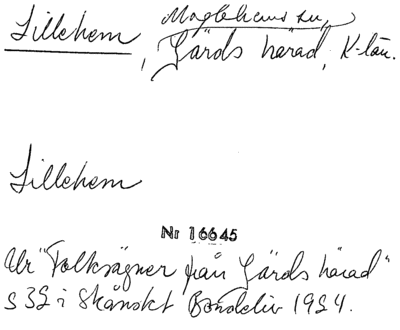 Lillehem, Maglehems sn.,
Gärds härad, K-län.
Lillehem
Nr 16645
Ur "Folksägner från Gärds härad"
s 32 i Skånskt Bondeliv 1924.